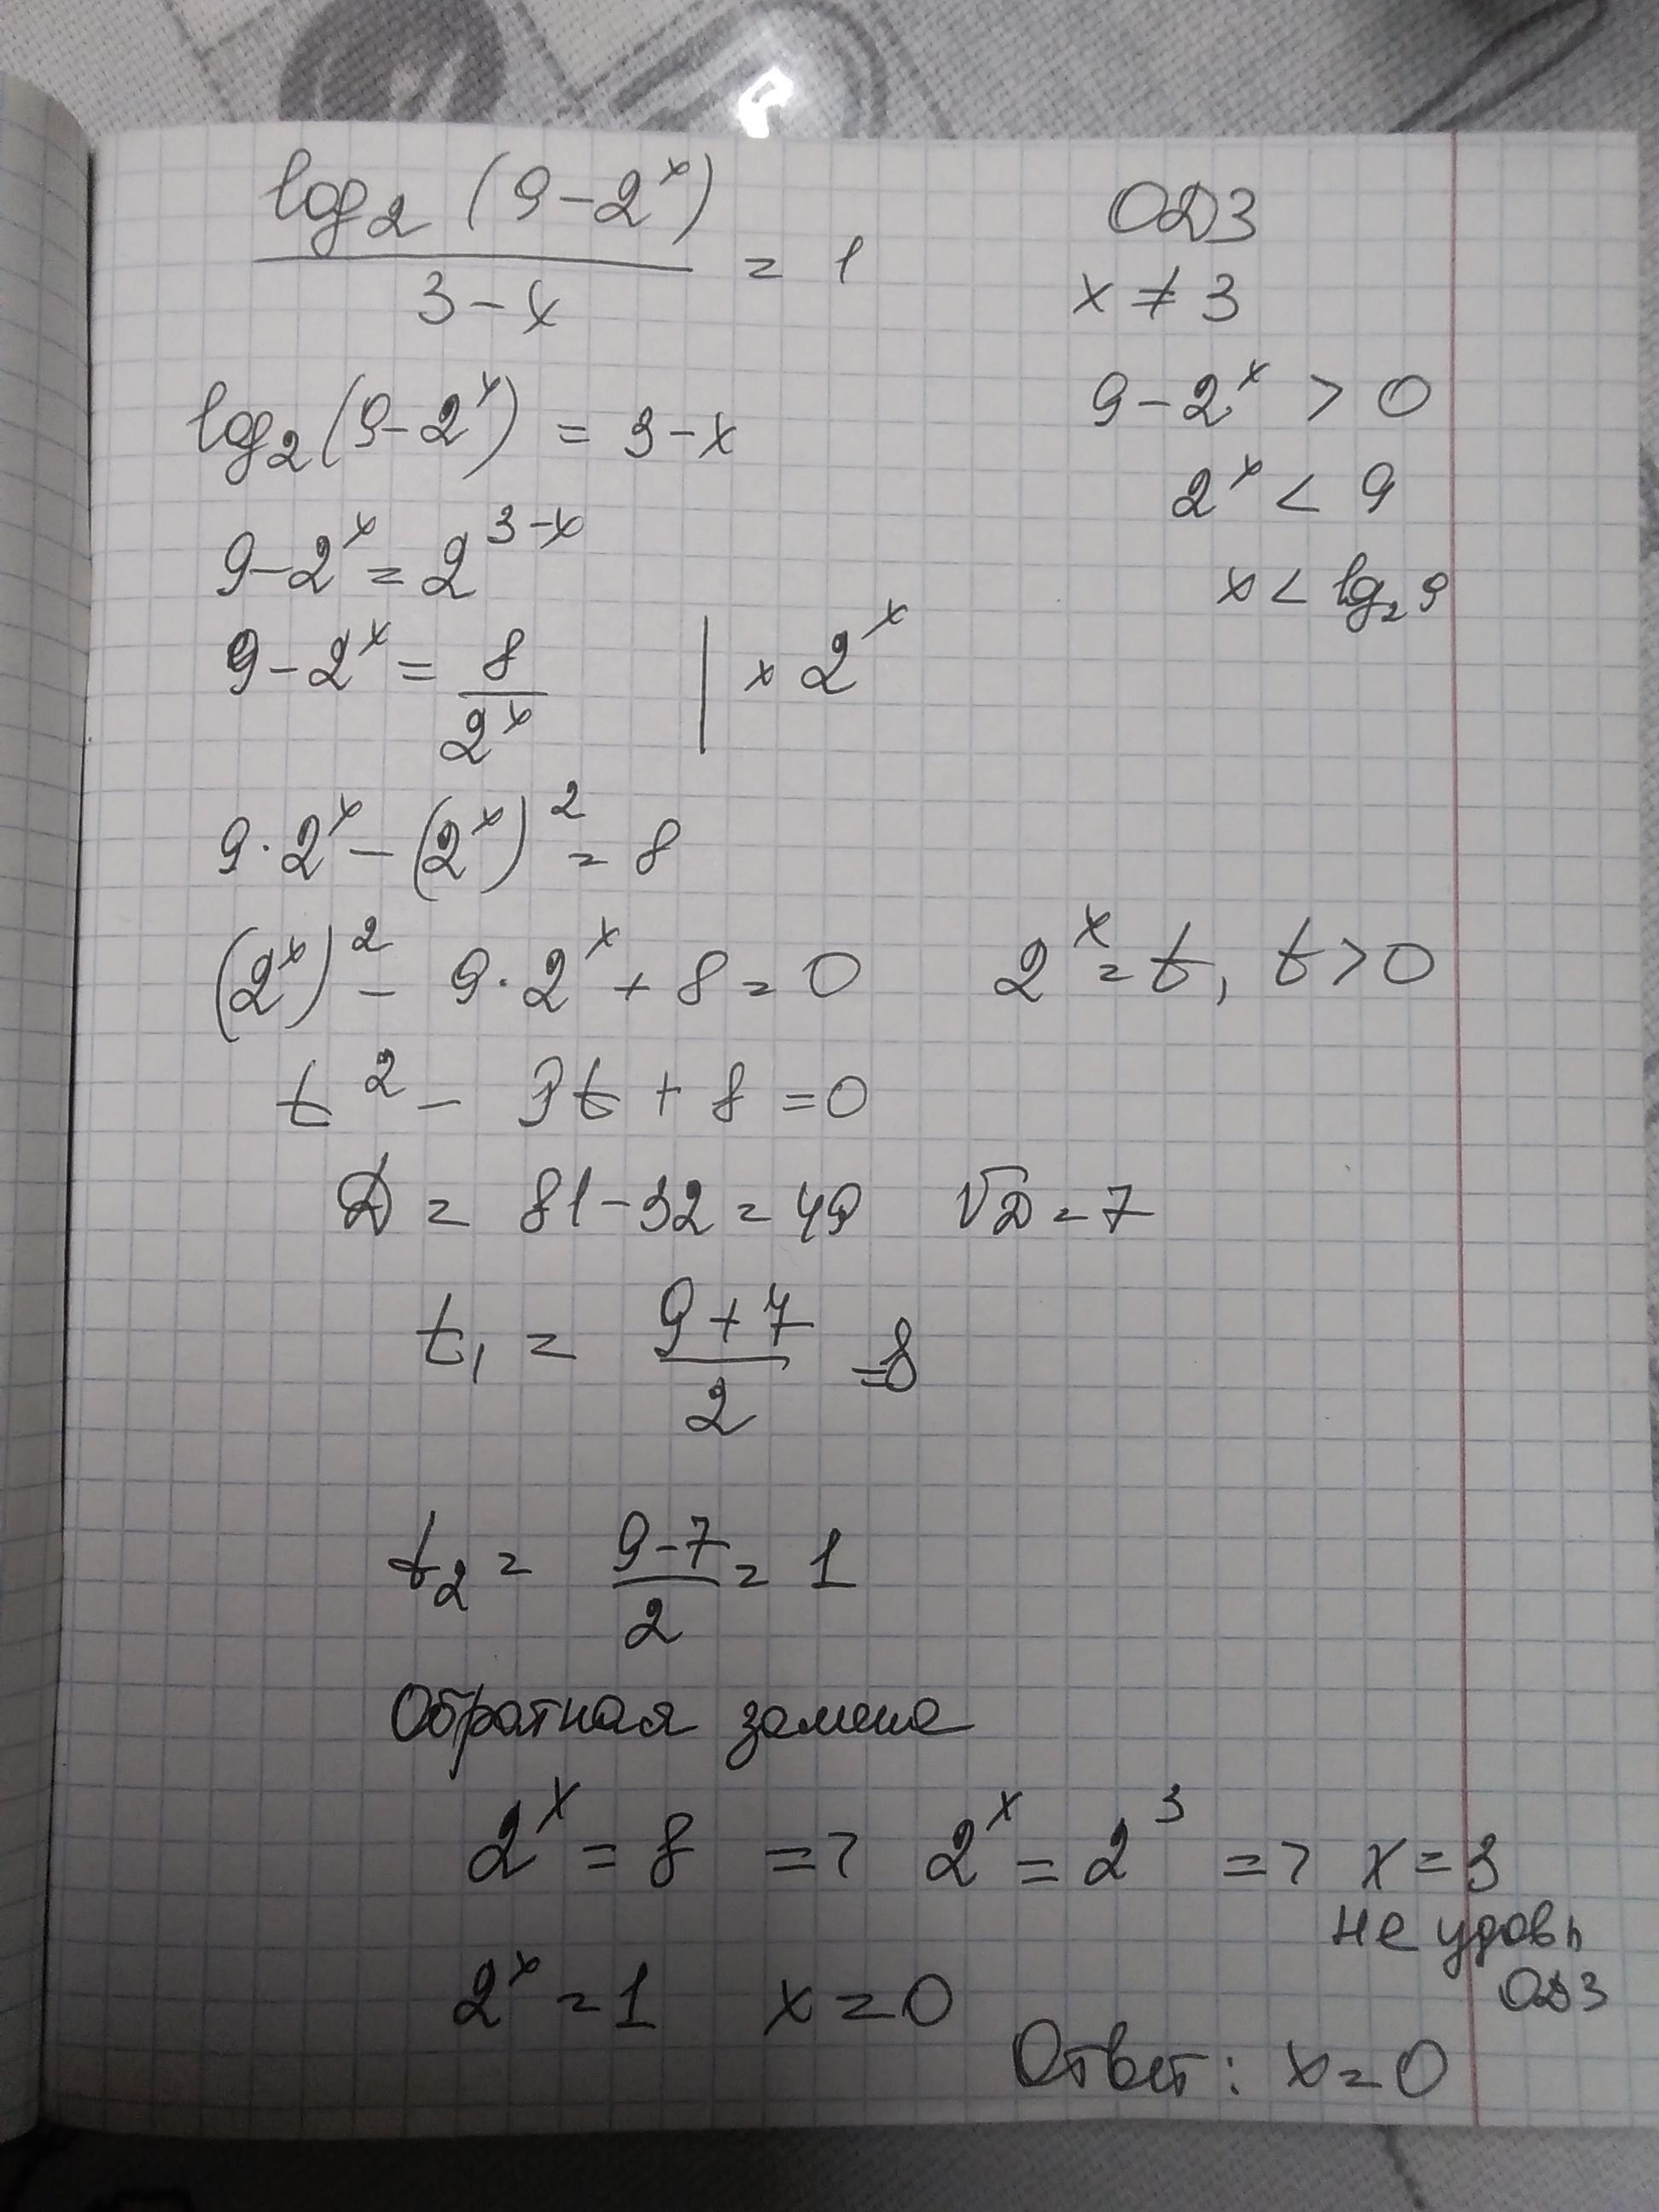 log₂(9-2ˣ)/(3-x) = 1
ОДЗ
x ≠ 3
9-2ˣ > 0
2ˣ < 9
x < log₂9
log₂(9-2ˣ) = 3-x
9-2ˣ = 2³⁻ˣ
9-2ˣ = 8/2ˣ | × 2ˣ
9·2ˣ - (2ˣ)² = 8
(2ˣ)² - 9·2ˣ + 8 = 0 2ˣ = t, t > 0
t² - 9t + 8 = 0
D = 81-32 = 49 √D = 7
t₁ = (9+7)/2 = 8
t₂ = (9-7)/2 = 1
Обратная замена
2ˣ = 8 => 2ˣ = 2³ => x = 3
не удовл
ОДЗ
2ˣ = 1 x = 0
Ответ: x = 0